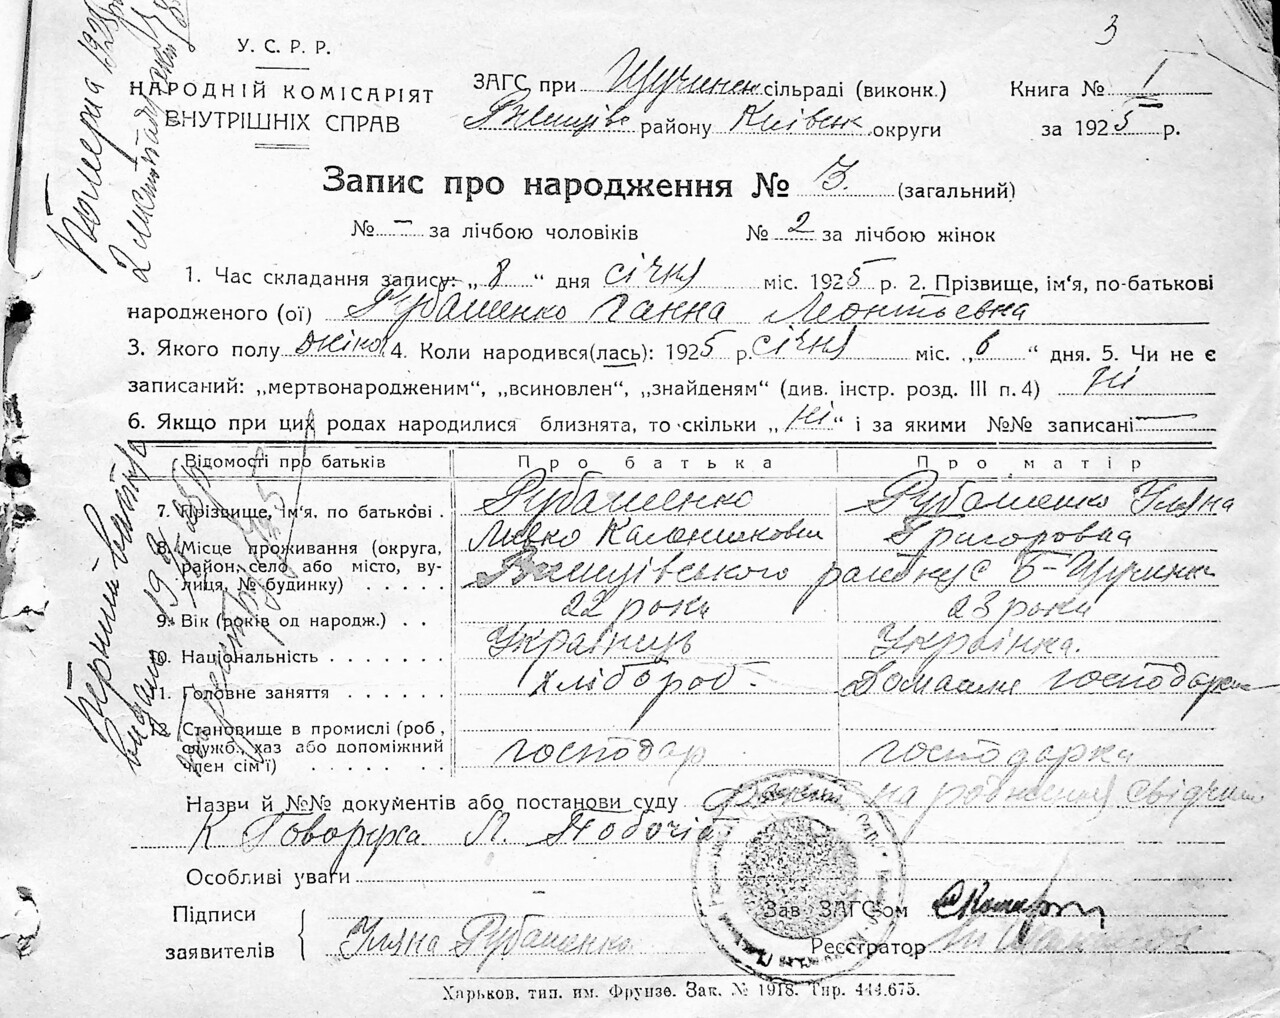 3
У. С. Р. Р.
НАРОДНІЙ КОМІСАРІЯТ
ВНУТРІШНІХ СПРАВ
ЗАГС при Щучинск сільраді (виконк.)
Ржищівс району Київськ округи
Книга № I
за 1925 р.
Запис про народження № 3. (загальний)
№ – за лічбою чоловіків № 2 за лічбою жінок
1. Час складання запису: „ 8 “ дня січня міс. 1925 р. 2. Прізвище, ім‘я, по-батькові
народженого (ої) Рубашенко Ганна Леонтьевна
3. Якого полу жіноч 4. Коли народився(лась): 1925 р. січня міс. „ 6 “ дня. 5. Чи не є
записаний: „мертвонародженим“, „всиновлен“, „знайденям“ (див. інстр. розд. III п. 4) Ні
6. Якщо при цих родах народилися близнята, то скільки „ Ні “ і за якими №№ записані —
Відомості про батьків Про батька Про матір
7. Прізвище, ім‘я, по батькові . Рубашенко Рубашенко Уляна
Григоровна
8. Місце проживання (округа,
район, село або місто, ву-
лиця, № будинку) . . . . . Ржищівського району с Б-Щучинка
9. Вік (років од народж.) . . 22 роки 23 роки
10. Національність . . . . . . . Українець Українка.
11. Головне заняття . . . . . . . хлібороб. Домашня господарка
Становище в промислі (роб.,
служб., хаз або допоміжний
член сім‘ї) . . . . . . господар господарка
Назви й №№ документів або постанови суду народження свідчили
К Говоруха П.
Особливі уваги
Підписи
заявителів
Уляна Рубашенко
Зав ЗАГС‘ом
Реєстратор
Харьков, тип. им. Фрунзе. Зак. № 1918. Тир. 444.675.
Померла